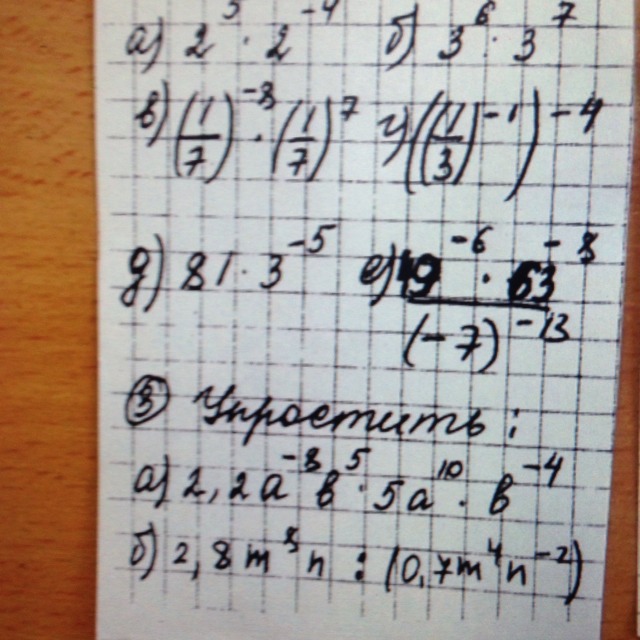 а) 2³ · 2⁻⁴ б) 3⁶ : 3⁷
в) (1/7)⁻⁸ · (1/7)⁷ г) ((1/3)⁻¹)⁻⁴
д) 81 · 3⁻⁵ е)
(-7)⁻¹³
③ Упростить:
а) 2,2a⁻⁸b⁵ · 5a¹⁰ · b⁻⁴
б) 2,8m⁸n : (0,7m⁴n⁻²)